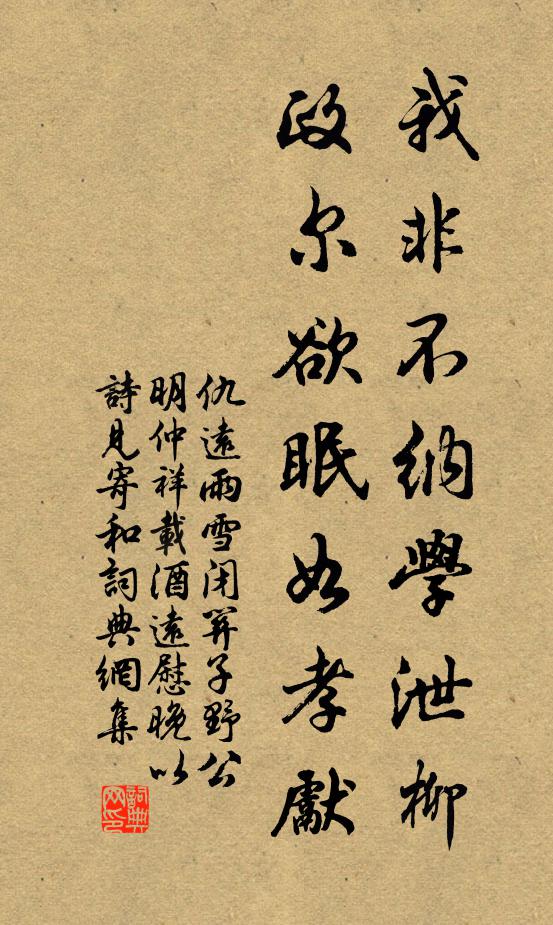 我非不納學泄柳
政尔欲眠如孝獻
仇遠雨雪閉門子野公
明仲祥載酒遠慰晚以
詩見寄和詞典網集
詞典网印